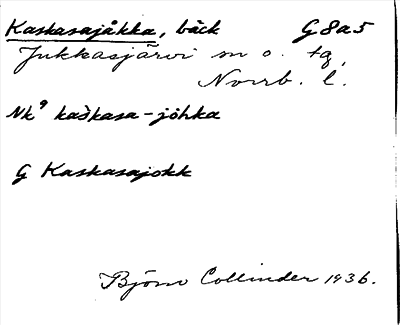 Kaskasajåkka, bäck G 8 a 5
Jukkasjärvi sn o. tg,
Norrb. l.
Nk⁹ kaškasa-jόhka
G Kaskasajokk
Björn Collinder 1936.